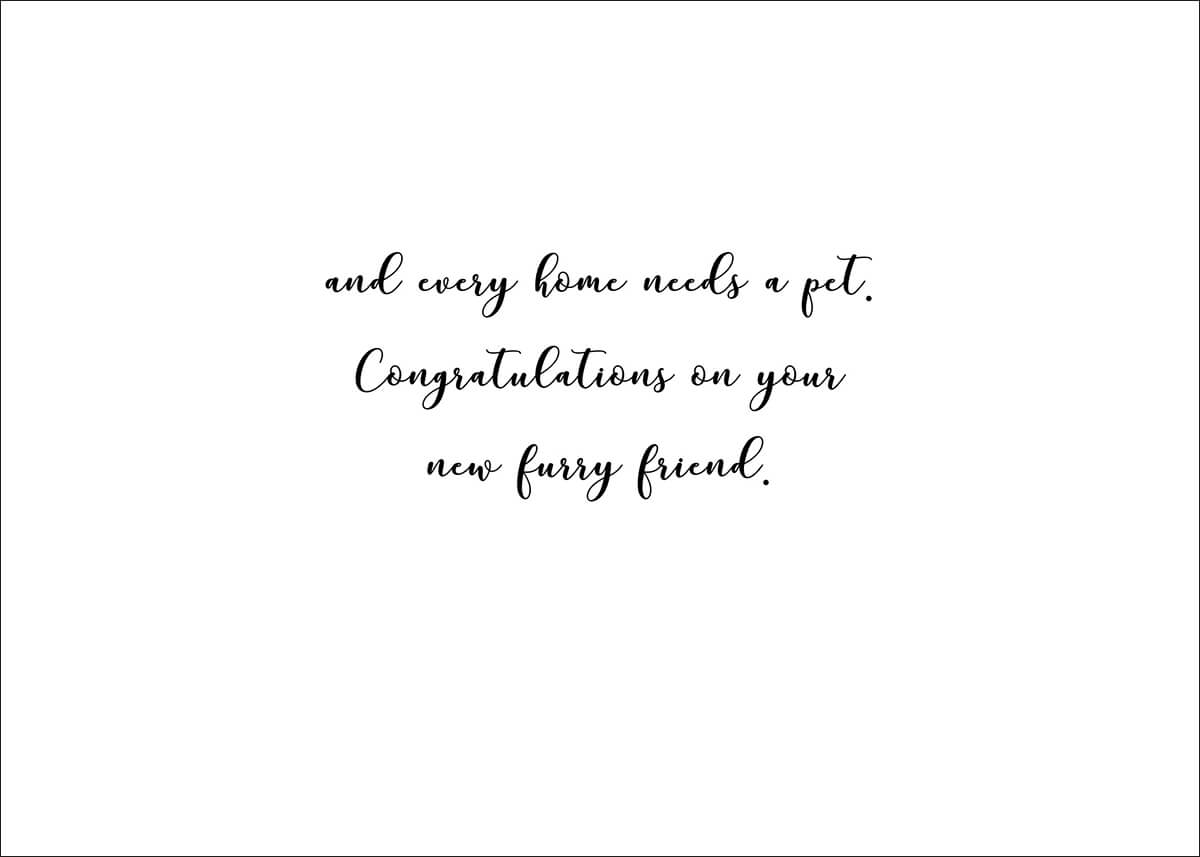 and every home needs a pet.
Congratulations on your
new furry friend.